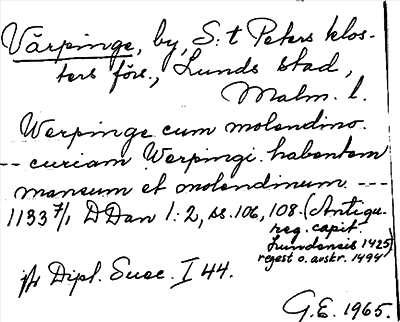 Värpinge, by, S:t Peters klos-
ters förs., Lunds stad,
Malm. l.
Werpinge cum molendino.
-- curiam Werpingi habentem
mansum et molendinum ---
1133 7/1 DDan 1:2, ss. 106, 108 (Antiqu.
reg. capit.
Lundensis 1425)
regest o. avskr. 1494
jfr Dipl. Suec. I 44.
G.E. 1965.